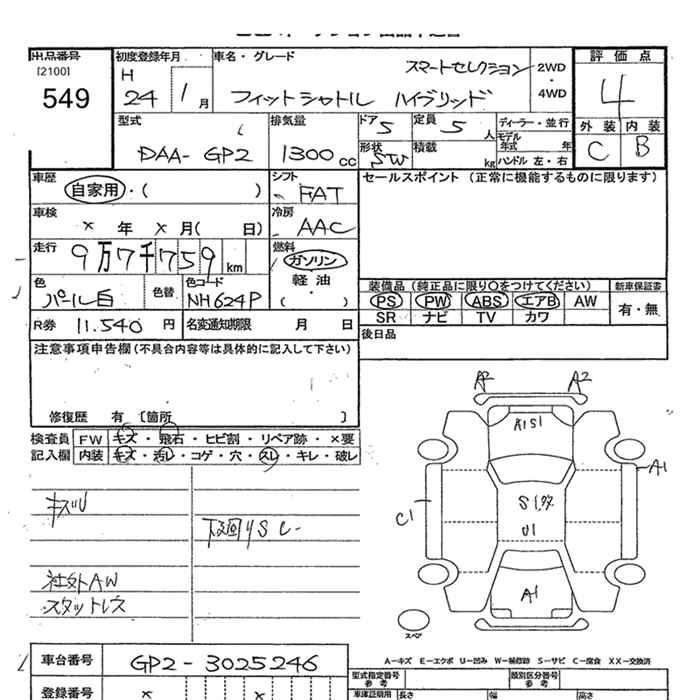 出品番号 初度登録年月 車名・グレード 評価点
[2100] H スマートセレクション 2WD
549 24 1月 フィットシャトル ハイブリッド ・4WD 4
型式 排気量 ドア 5 定員 5人 ディーラー・並行 外装 内装
DAA-GP2 1300cc 形状 SW 積載 kg モデル年式 年 C B
ハンドル 左・右
車歴 自家用・( ) シフト FAT セールスポイント (正常に機能するものに限ります)
車検 × 年 × 月( 日) 冷房 AAC
走行 9万7千759km 燃料 ガソリン
軽油
・( )
色 パール白 色替 色コード NH624P
装備品 (純正品に限り○をつけてください) 新車保証書
PS PW ABS エアB AW 有・無
SR ナビ TV カワ
R券 11.540 円 名変通知期限 月 日 後日品
注意事項申告欄 (不具合内容等は具体的に記入して下さい)
修復歴 有 〔箇所 〕
検査員 FW キズ・飛石・ヒビ割・リペア跡・×要
記入欄 内装 キズ・汚レ・コゲ・穴・スレ・キレ・破レ
A2 A2
A1S1
A1
C1
U1
A1
下廻りSレ
社外AW
スタットレス
スペア
A-キズ E-エクボ U-凹み W-補修跡 S-サビ C-腐食 XX-交換済
車台番号 GP2-3025246
型式指定番号 参考 類別区分番号 参考
登録番号 × ×
車庫証明用 長さ 幅 高さ